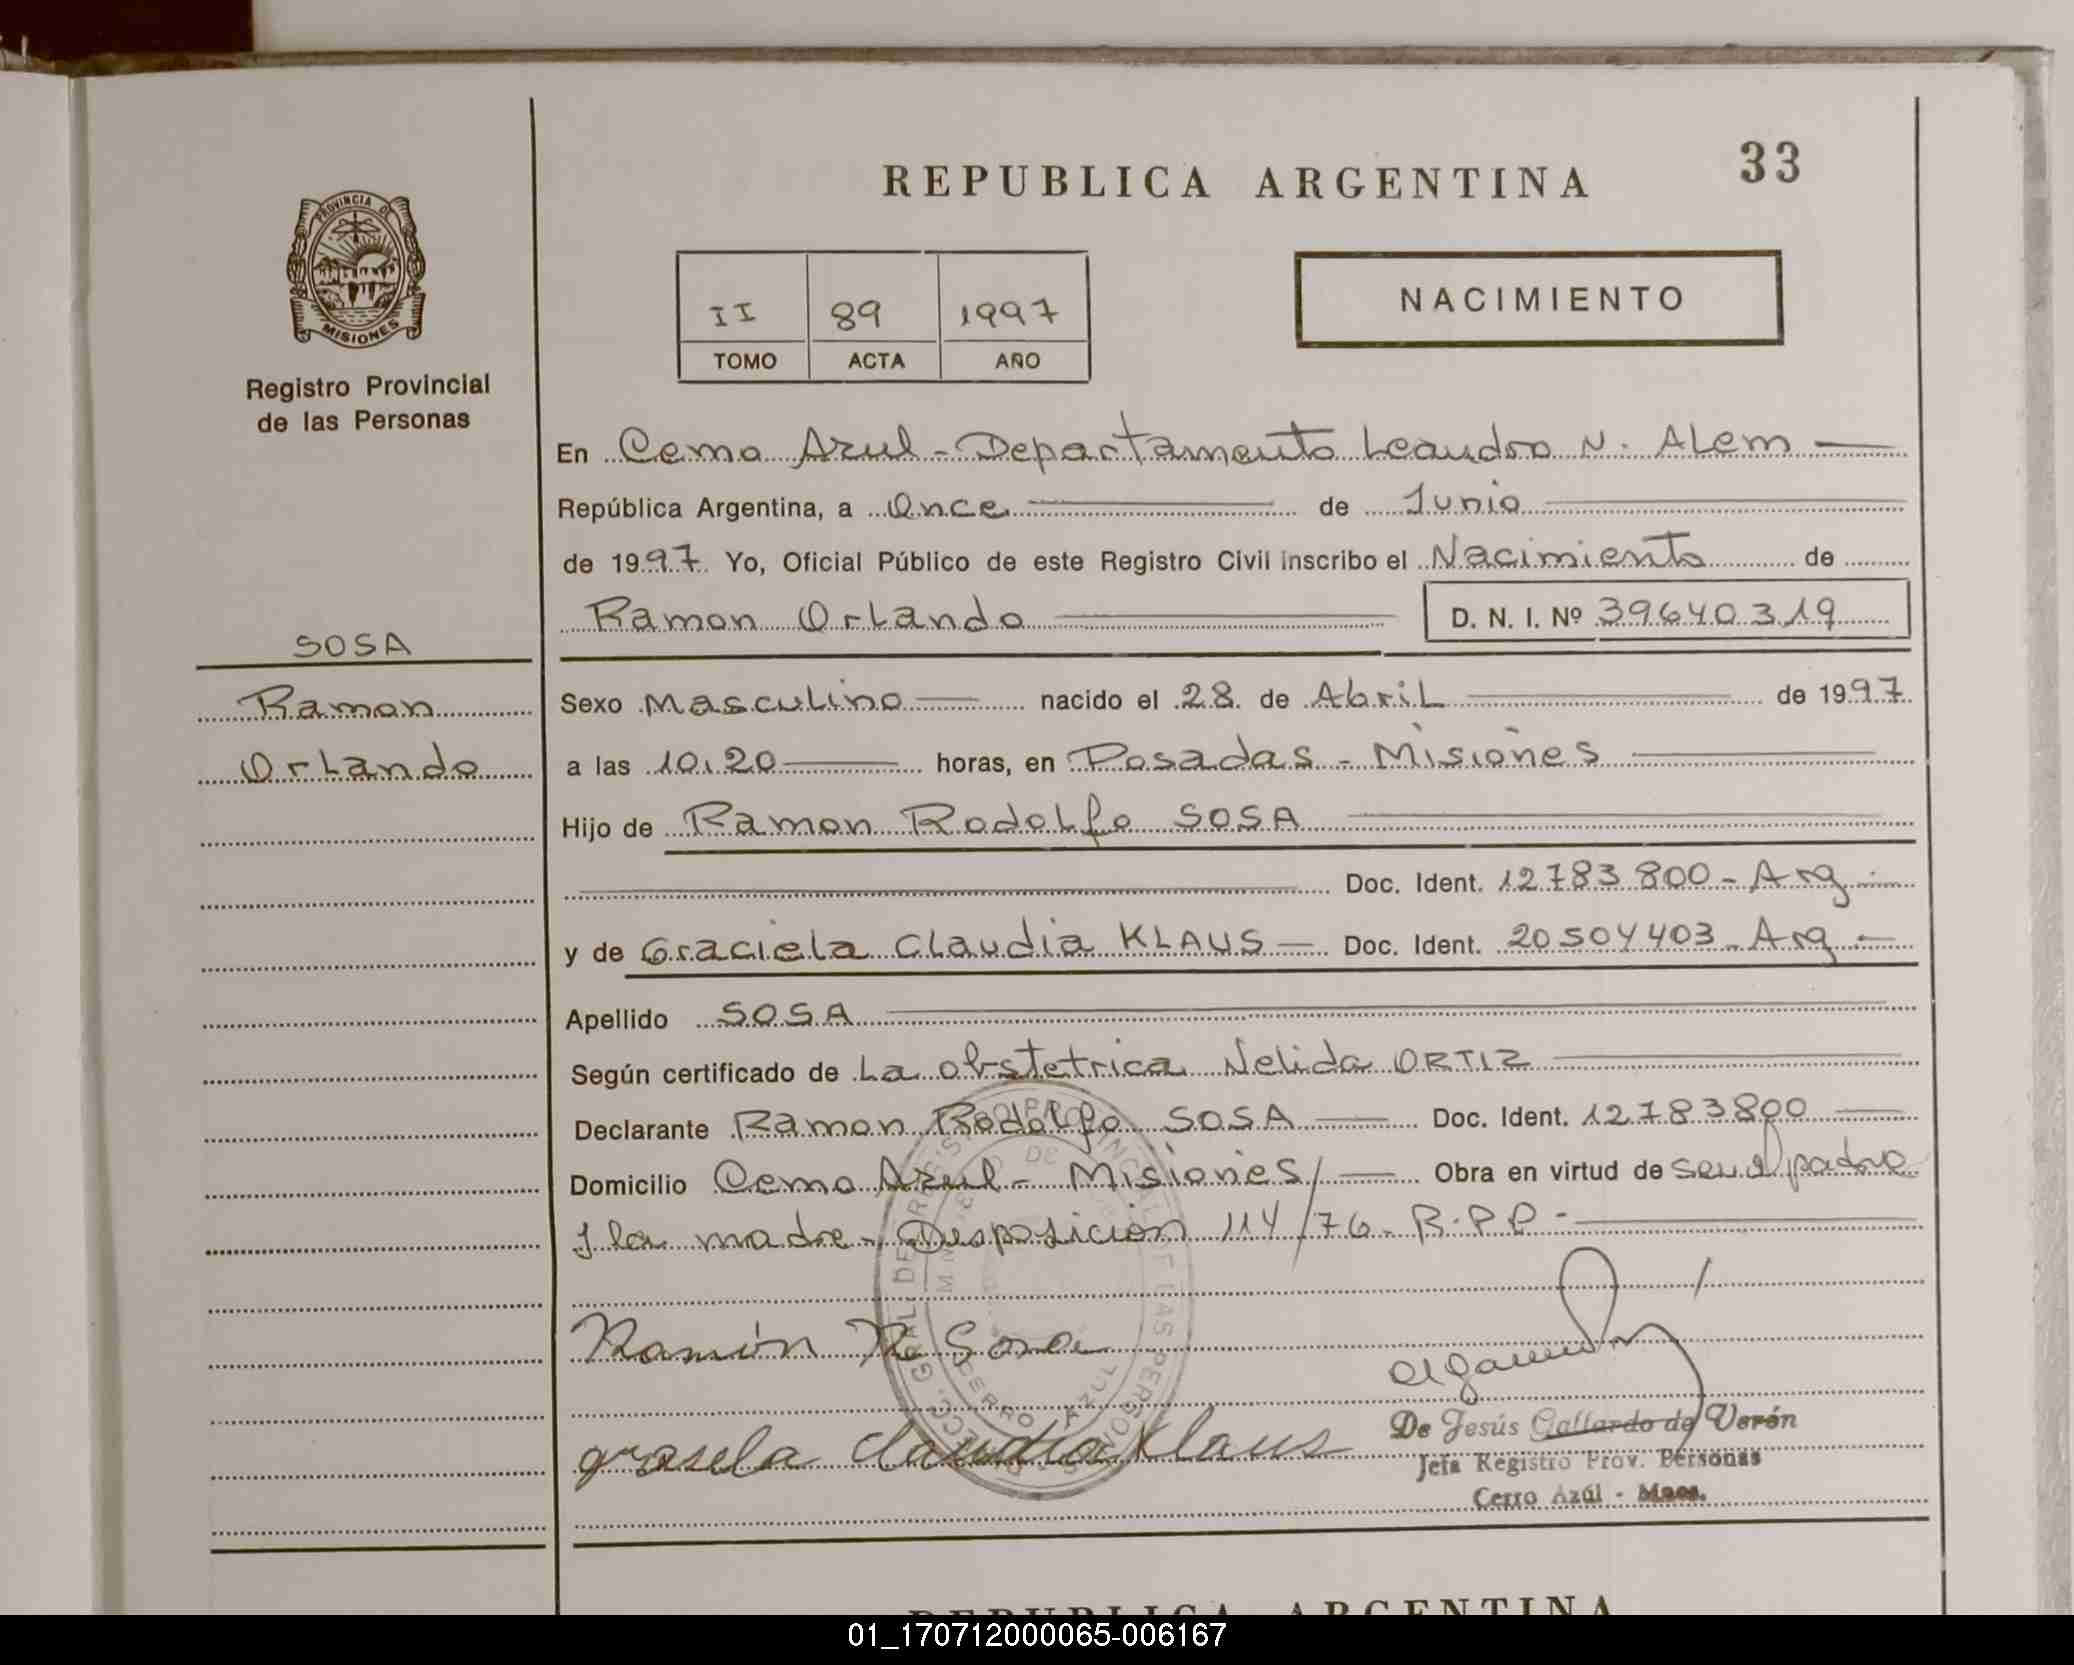 33
REPUBLICA ARGENTINA
PROVINCIA DE
MISIONES
Registro Provincial
de las Personas
NACIMIENTO
II 89 1997
TOMO ACTA AÑO
En Cerro Azul - Departamento Leandro N. Alem
República Argentina, a Once de Junio
de 1997 Yo, Oficial Público de este Registro Civil inscribo el Nacimiento de
Ramon Orlando D. N. I. Nº 39640319
SOSA
Ramon
Orlando
Sexo Masculino nacido el 28 de Abril de 1997
a las 10,20 horas, en Posadas - Misiones
Hijo de Ramon Rodolfo SOSA
Doc. Ident. 12783800 - Arg -
y de Graciela Claudia KLAUS - Doc. Ident. 20504403 - Arg -
Apellido SOSA
Según certificado de La obstetrica Nelida ORTIZ
Declarante Ramon Rodolfo SOSA Doc. Ident. 12783800
Domicilio Cerro Azul - Misiones Obra en virtud de ser el padre
y la madre - Disposición 114/76 - R.P.P -
Ramón R Sosa
grasela claudia Klaus
De Jesús Gallardo de Verón
Jefa Registro Prov. Personas
Cerro Azúl - Mnes.
CERRO AZUL
REPUBLICA ARGENTINA
01_170712000065-006167